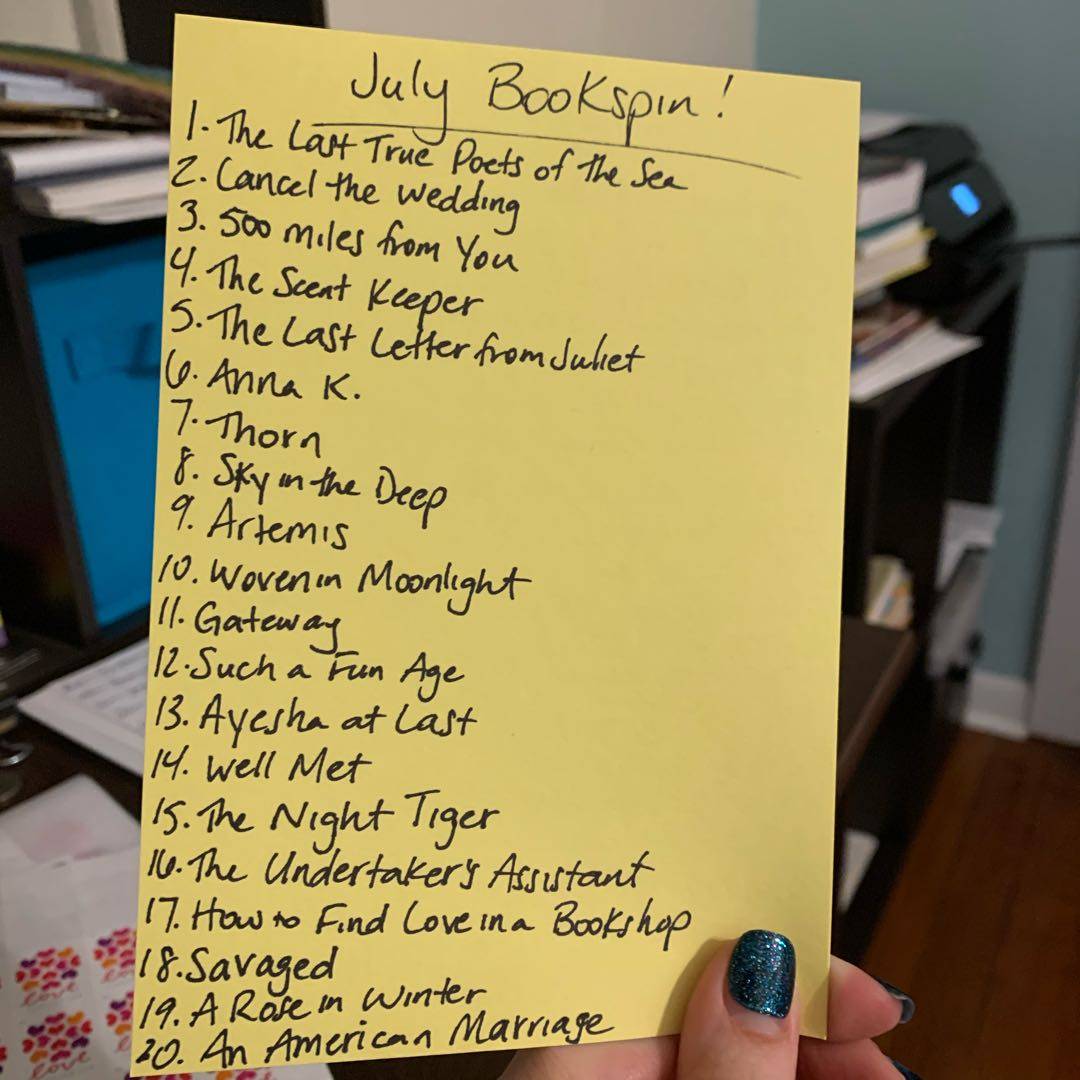 July Bookspin!
1. The Last True Poets of the Sea
2. Cancel the wedding
3. 500 miles from You
4. The Scent Keeper
5. The Last Letter from Juliet
6. Anna K.
7. Thorn
8. Sky in the Deep
9. Artemis
10. Woven in Moonlight
11. Gateway
12. Such a Fun Age
13. Ayesha at Last
14. Well Met
15. The Night Tiger
16. The Undertaker's Assistant
17. How to Find Love in a Bookshop
18. Savaged
19. A Rose in Winter
20. An American Marriage
love
love